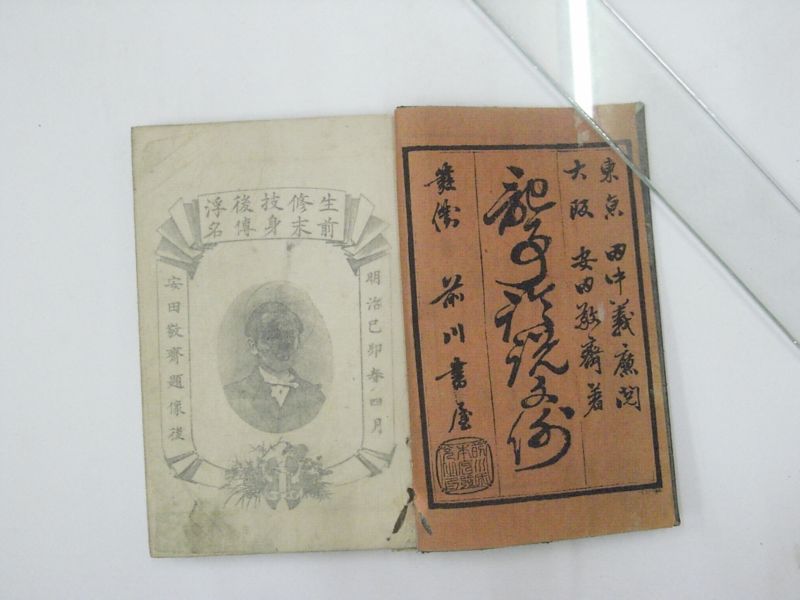 東亰 田中義廉閲
大阪 安田敬齋著
記事論説文例
發兌 前川書屋
生前修末技身後傳浮名
明治己卯春四月
安田敬齋題像後